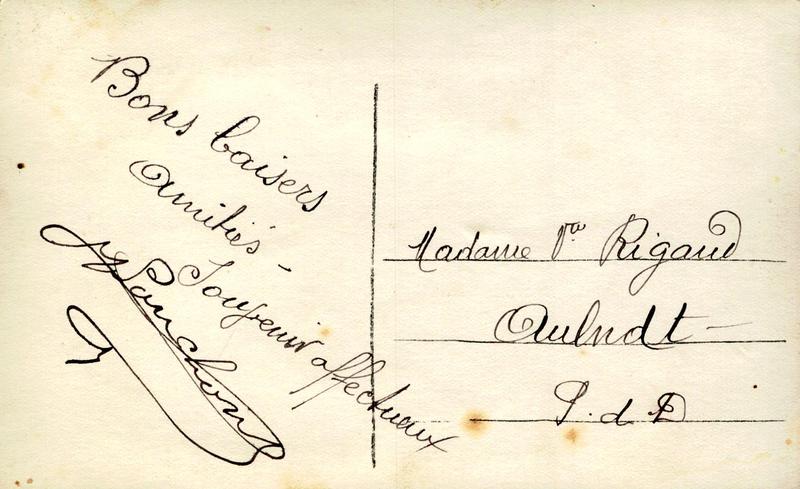 Bons baisers
Amitiés -
Souvenir affectueux
Madame Vve Rigaud
Aulndt -
P. d D